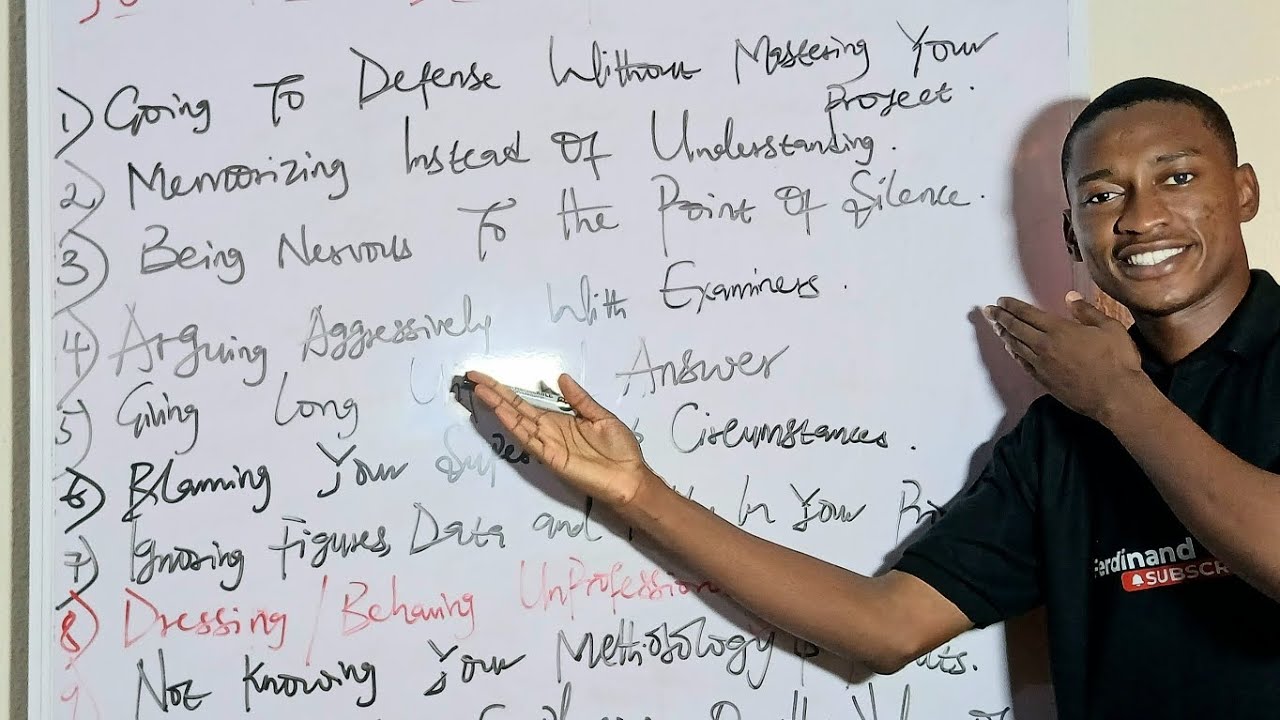 1) Going To Defense Without Mastering Your
project.
2) Memorizing Instead Of Understanding.
3) Being Nervous To the Point Of Silence.
4) Arguing Aggressively With Examiners.
5) Giving Long Answer
6) Blaming Your Circumstances.
7) Ignoring Figures, Data and In Your
8) Dressing / Behaving
9 Not Knowing Your Methodology
Ferdinand
SUBSCR